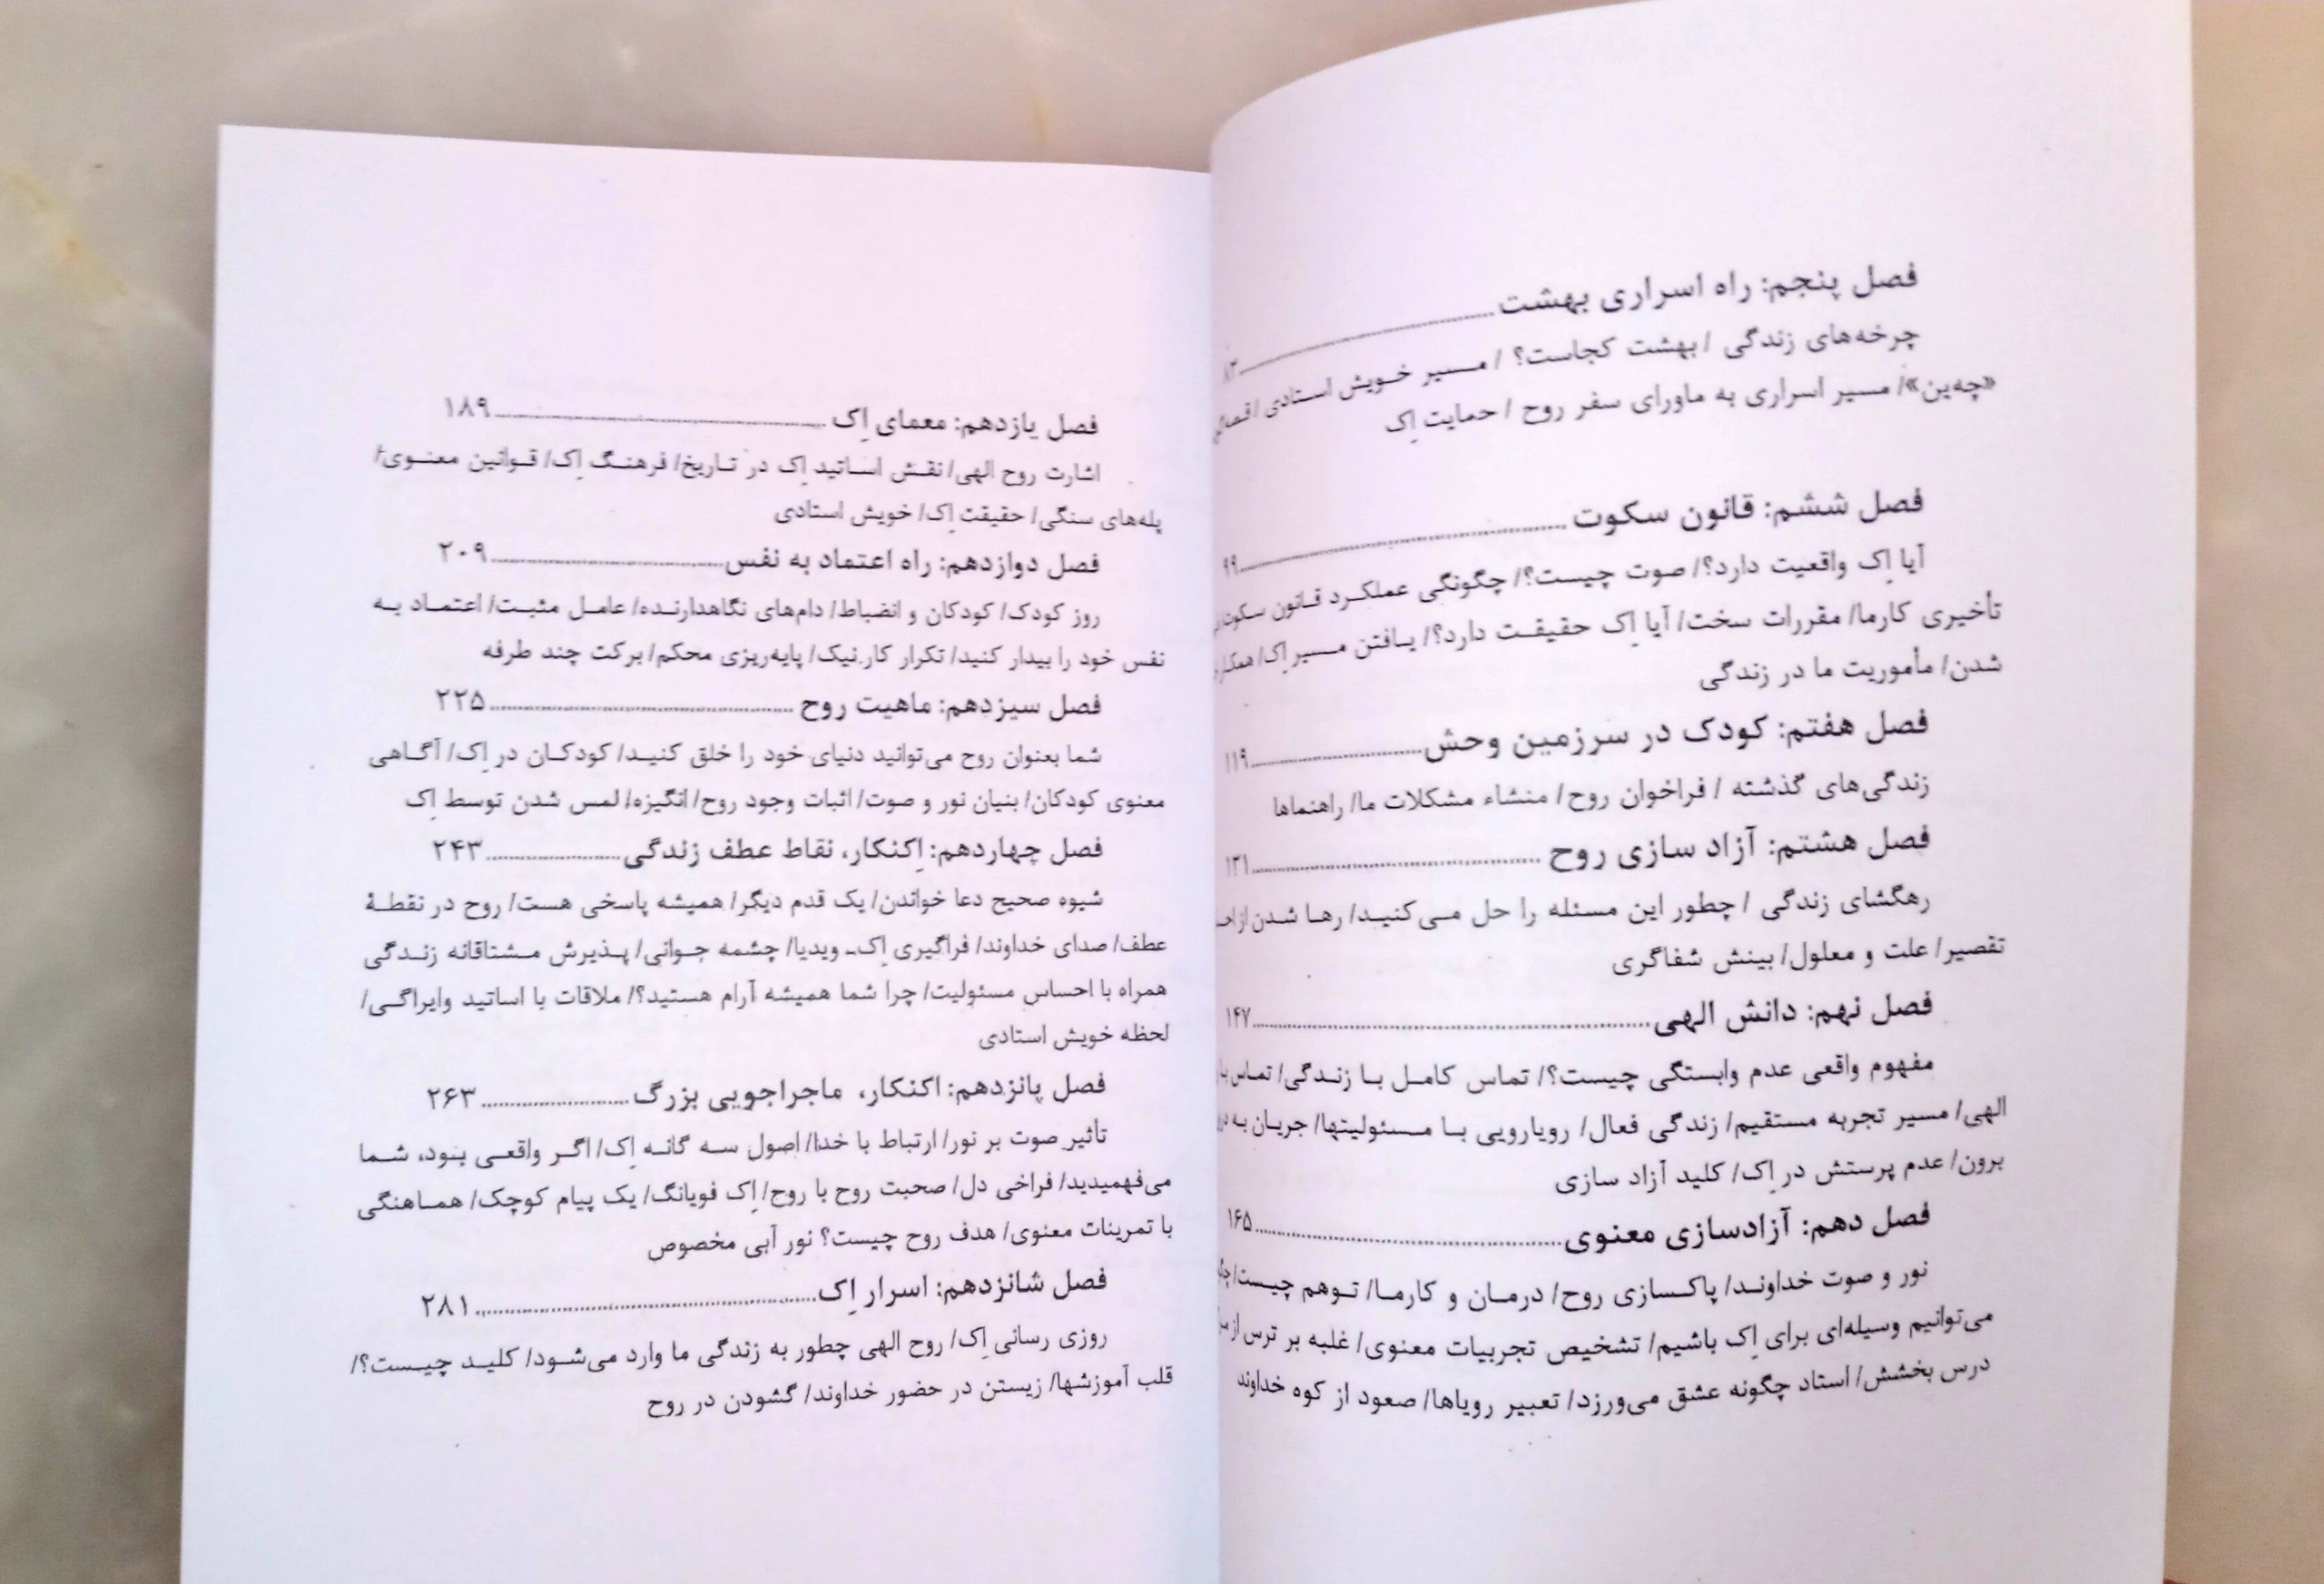 فصل پنجم: راه اسراری بهشت ........ ۸۳
چرخه‌های زندگی / بهشت کجاست؟ / مسیر خویش استادی /
«چه‌ین»/ مسیر اسراری به ماورای سفر روح / حمایت اِک
فصل ششم: قانون سکوت ........ ۹۹
آیا اِک واقعیت دارد؟/ صوت چیست؟/ چگونگی عملکرد قانون سکوت/
تأخیری کارما/ مقررات سخت/ آیا اِک حقیقت دارد؟/ یافتن مسیر اِک/
شدن/ مأموریت ما در زندگی
فصل هفتم: کودک در سرزمین وحش ........ ۱۱۹
زندگی‌های گذشته / فراخوان روح/ منشاء مشکلات ما/ راهنماها
فصل هشتم: آزاد سازی روح ........ ۱۳۱
رهگشای زندگی / چطور این مسئله را حل می‌کنید/ رها شدن از
تقصیر/ علت و معلول/ بینش شفاگری
فصل نهم: دانش الهی ........ ۱۴۷
مفهوم واقعی عدم وابستگی چیست؟/ تماس کامل با زندگی/ تماس با
الهی/ مسیر تجربه مستقیم/ زندگی فعال/ رویارویی با مسئولیتها/ جریان به
برون/ عدم پرستش در اِک/ کلید آزاد سازی
فصل دهم: آزادسازی معنوی ........ ۱۶۵
نور و صوت خداوند/ پاکسازی روح/ درمان و کارما/ توهم چیست/
می‌توانیم وسیله‌ای برای اِک باشیم/ تشخیص تجربیات معنوی/ غلبه بر ترس از
درس بخشش/ استاد چگونه عشق می‌ورزد/ تعبیر رویاها/ صعود از کوه خداوند
فصل یازدهم: معمای اِک ........ ۱۸۹
اشارت روح الهی/ نقش اساتید اِک در تاریخ/ فرهنگ اِک/ قوانین معنوی/
پله‌های سنگی/ حقیقت اِک/ خویش استادی
فصل دوازدهم: راه اعتماد به نفس ........ ۲۰۹
روز کودک/ کودکان و انضباط/ دام‌های نگاهدارنده/ عامل مثبت/ اعتماد به
نفس خود را بیدار کنید/ تکرار کار نیک/ پایه‌ریزی محکم/ برکت چند طرفه
فصل سیزدهم: ماهیت روح ........ ۲۲۵
شما بعنوان روح می‌توانید دنیای خود را خلق کنید/ کودکان در اِک/ آگاهی
معنوی کودکان/ بنیان نور و صوت/ اثبات وجود روح/ انگیزه/ لمس شدن توسط اِک
فصل چهاردهم: اِکنکار، نقاط عطف زندگی ........ ۲۴۳
شیوه صحیح دعا خواندن/ یک قدم دیگر/ همیشه پاسخی هست/ روح در نقطۀ
عطف/ صدای خداوند/ فراگیری اِک‌ـ ویدیا/ چشمه جوانی/ پذیرش مشتاقانه زندگی
همراه با احساس مسئولیت/ چرا شما همیشه آرام هستید؟/ ملاقات با اساتید وایراگی/
لحظه خویش استادی
فصل پانزدهم: اکنکار، ماجراجویی بزرگ ........ ۲۶۳
تأثیر صوت بر نور/ ارتباط با خدا/ اصول سه گانه اِک/ اگر واقعی بنود، شما
می‌فهمیدید/ فراخی دل/ صحبت روح با روح/ اِک فویانگ/ یک پیام کوچک/ هماهنگی
با تمرینات معنوی/ هدف روح چیست؟ نور آبی مخصوص
فصل شانزدهم: اسرار اِک ........ ۲۸۱
روزی رسانی اِک/ روح الهی چطور به زندگی ما وارد می‌شود/ کلید چیست؟/
قلب آموزشها/ زیستن در حضور خداوند/ گشودن در روح